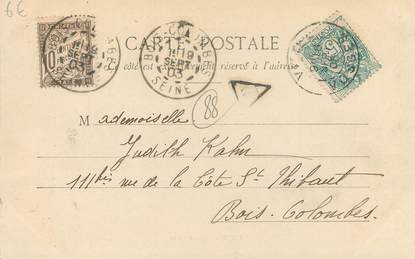 6€
CARTE POSTALE
Ce côté est exclusivement réservé à l'adresse
BOIS-COLOMBES
19
SEPT
03
SEINE
88
Mademoiselle
Judith Kahn
111bis rue de la Côte St Thibaut
Bois-Colombes.